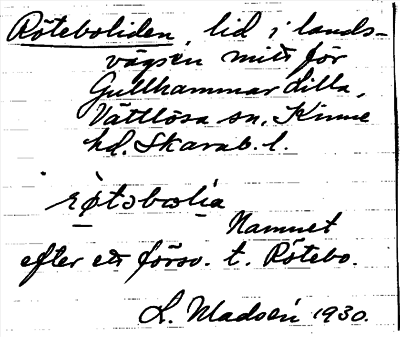 Röteboliden, lid i lands-
vägen mitt för
Gullhammar d. lilla,
Vättlösa sn, Kinne
hd. Skarab. l.
røtəbolia
Namnet
efter ett försv. t. Rötebo.
L. Madsén 1930.